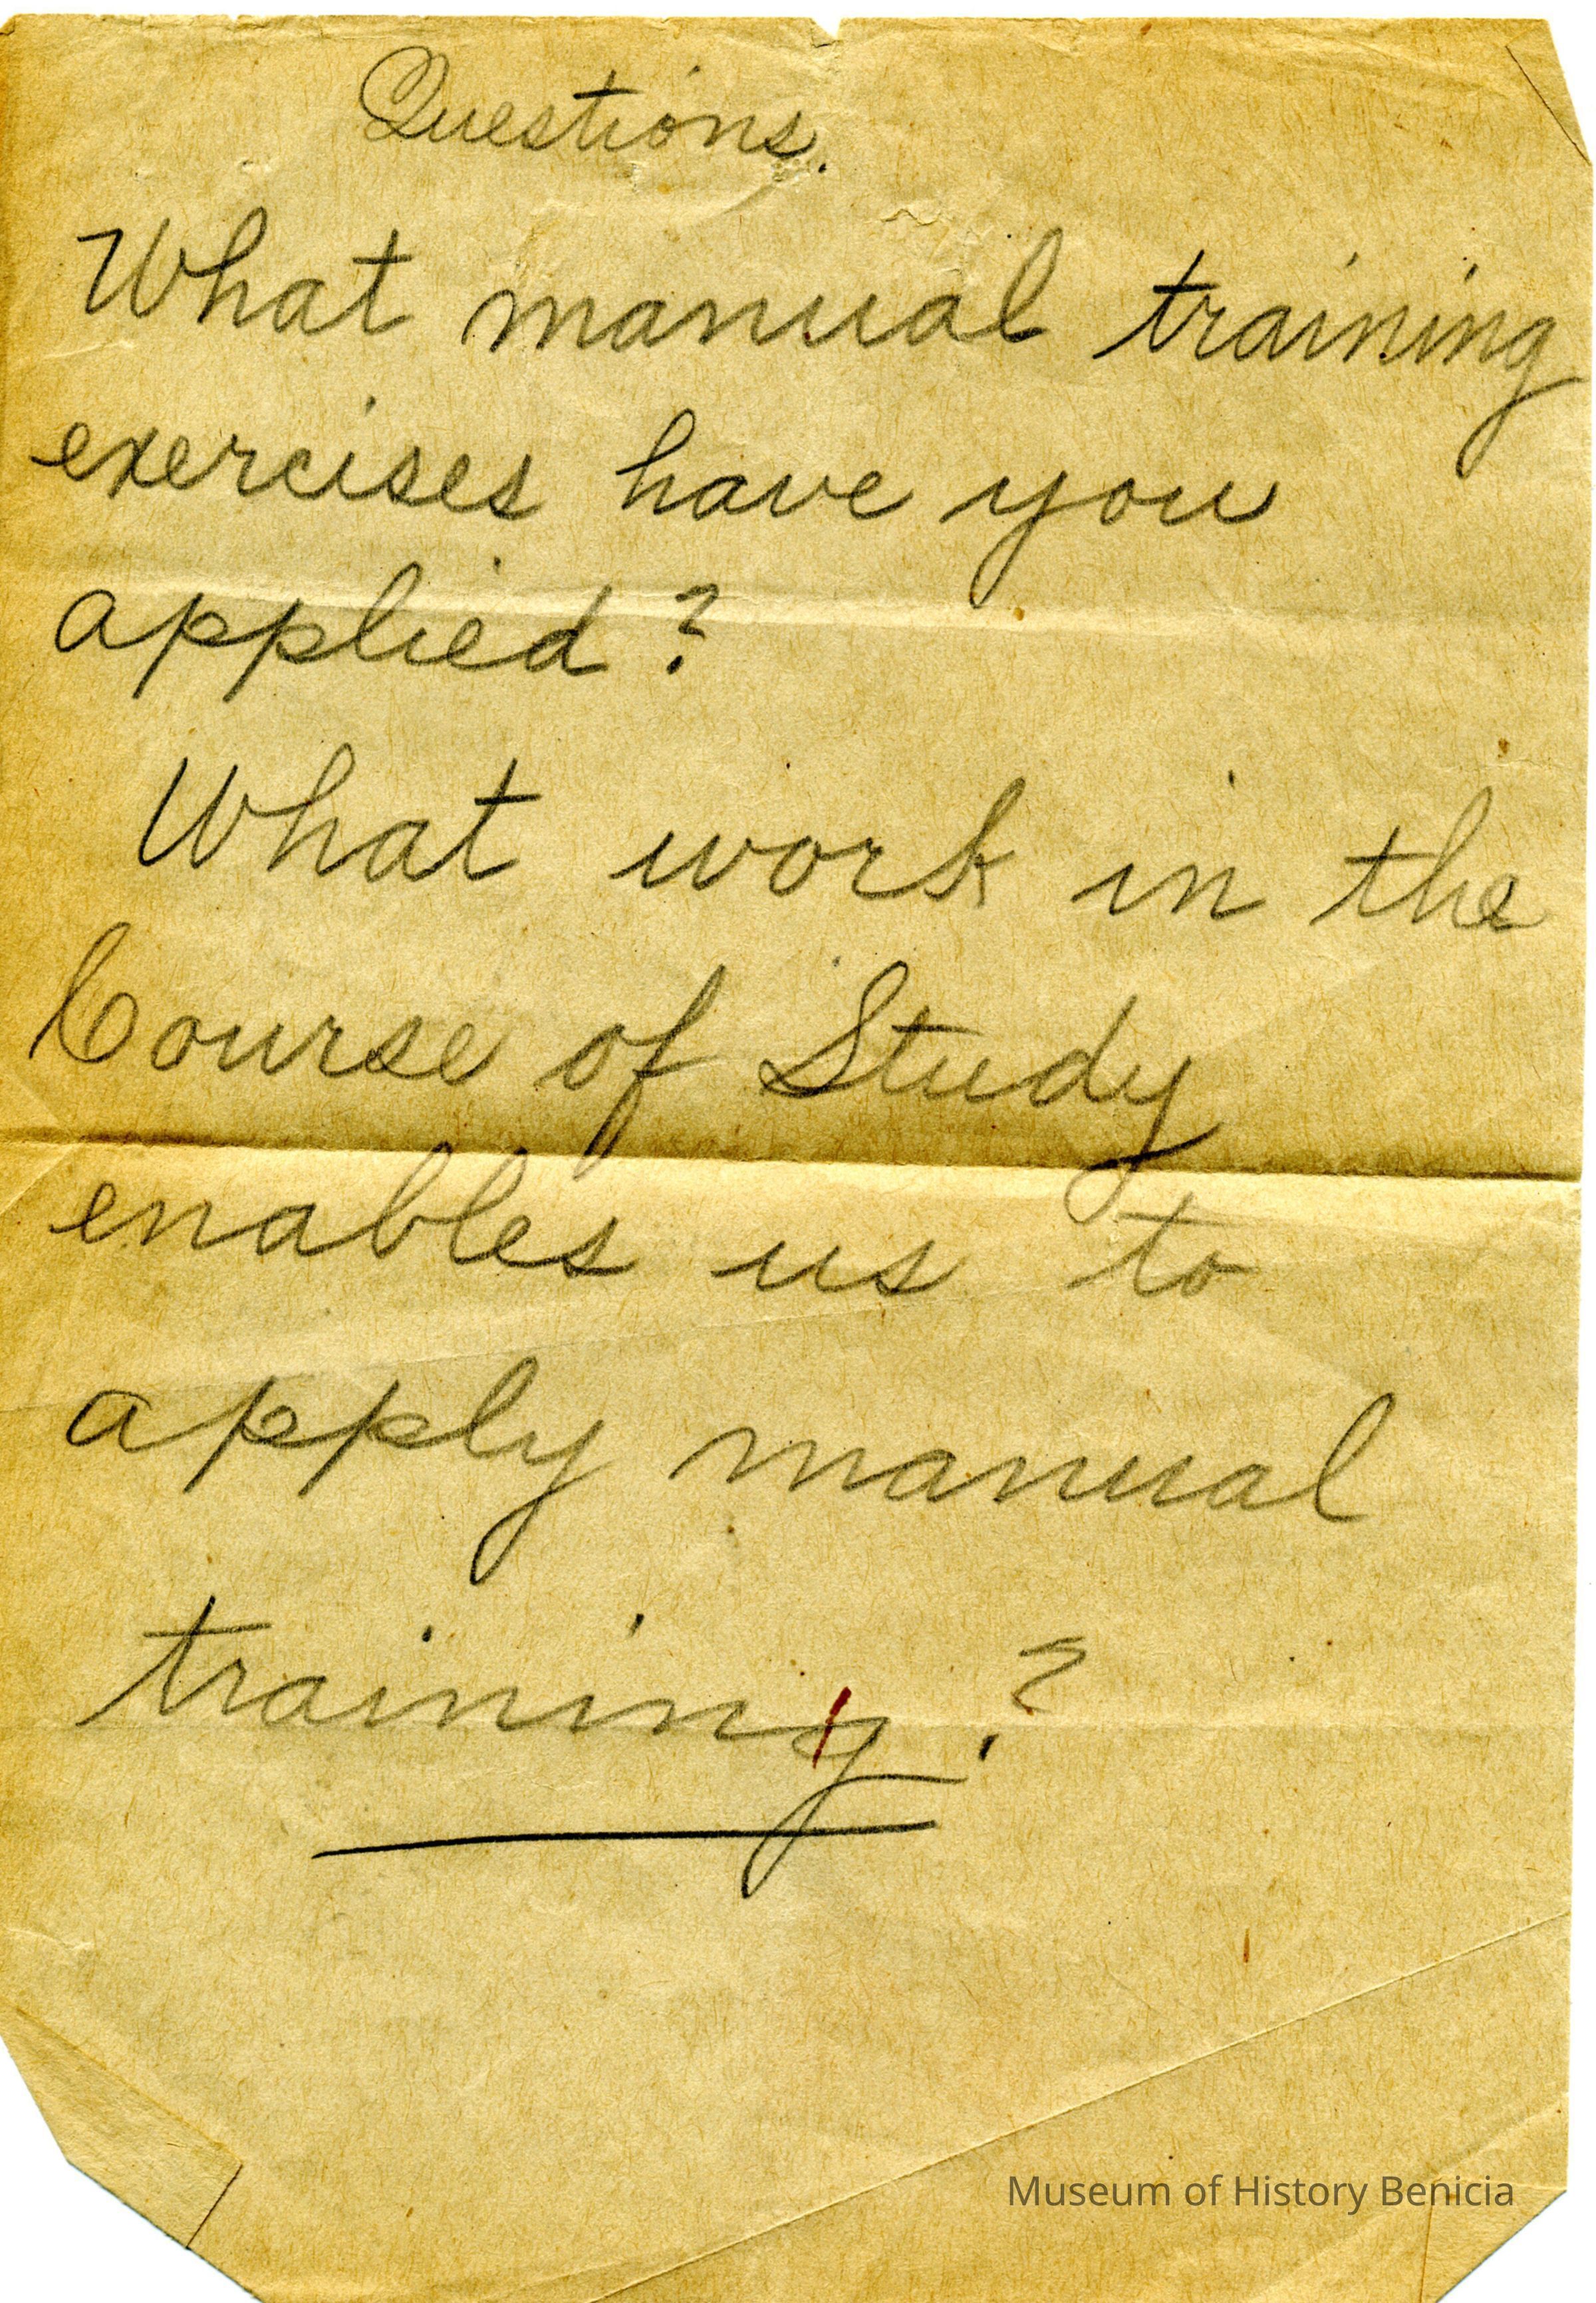 Questions.
What manual training
exercises have you
applied?
What work in the
Course of Study
enables us to
apply manual
training?
Museum of History Benicia